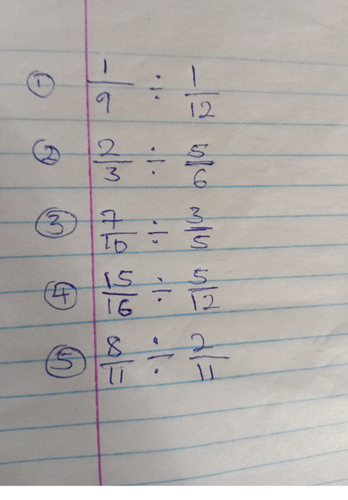 ① 1/9 ÷ 1/12
② 2/3 ÷ 5/6
③ 7/10 ÷ 3/5
④ 15/16 ÷ 5/12
⑤ 8/11 ÷ 2/11